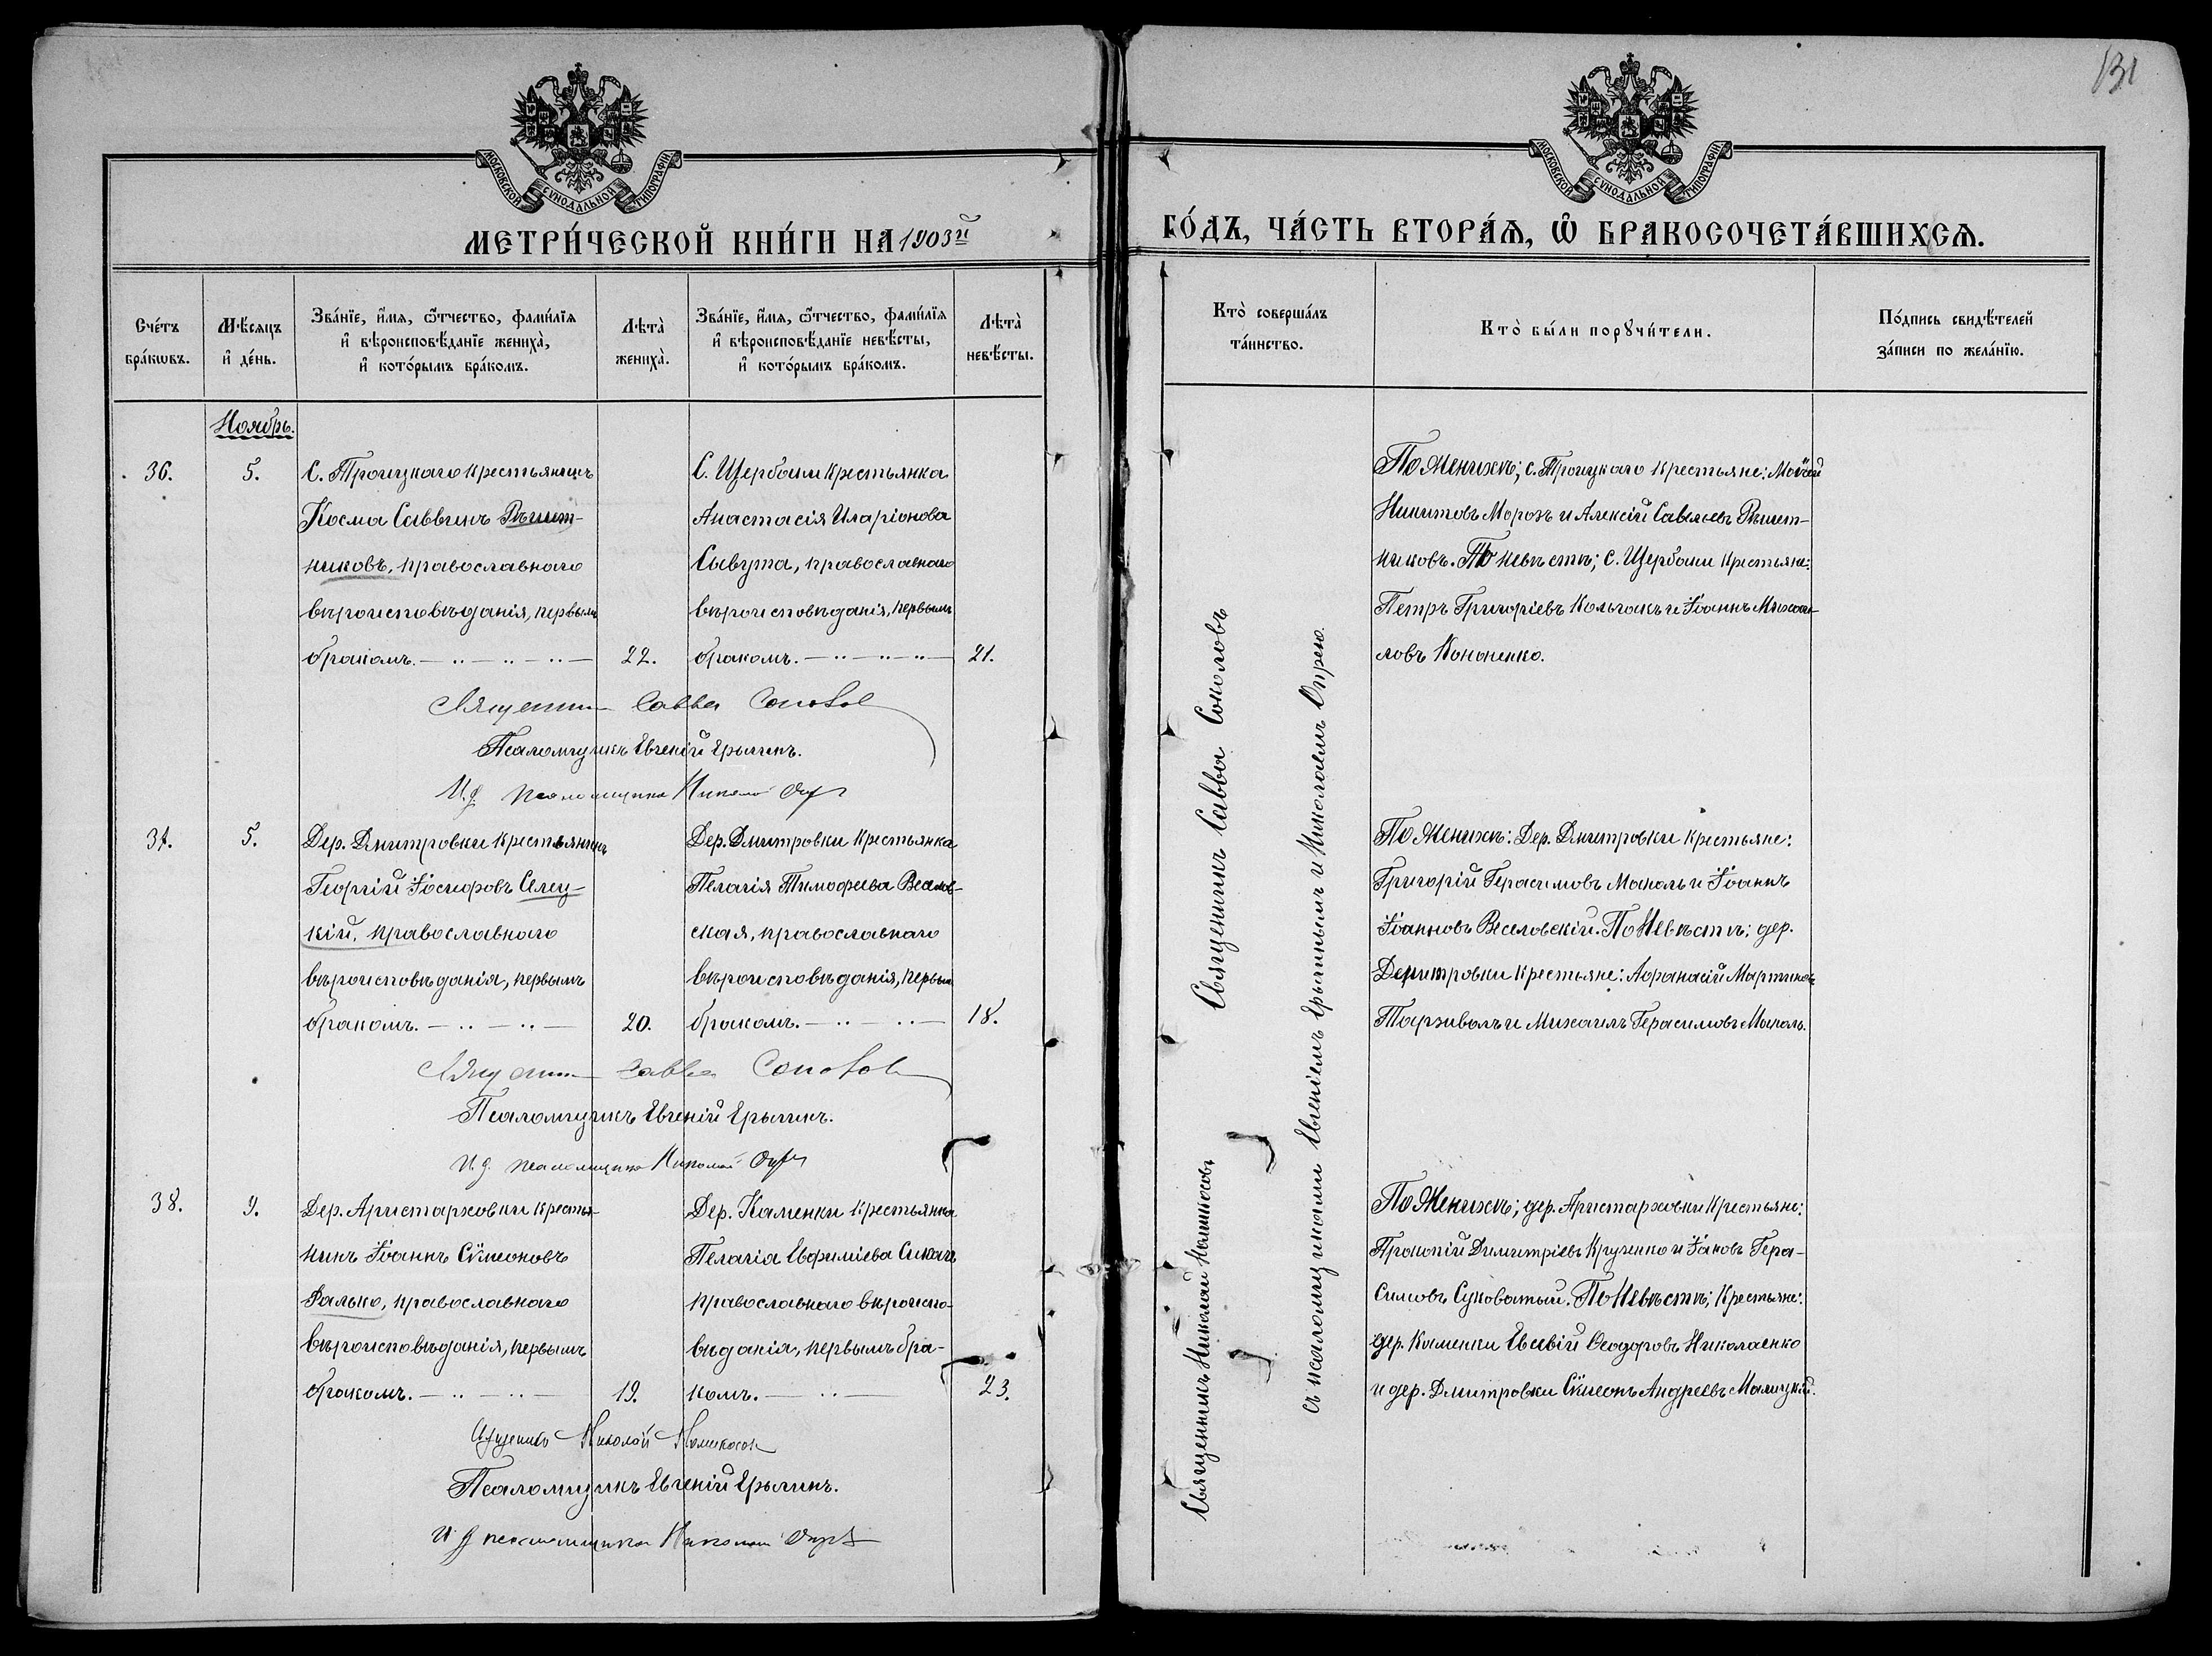 131
МОСКОВСКОЙ СѴНОДАЛЬНОЙ ТИПОГРАФІИ
МОСКОВСКОЙ СѴНОДАЛЬНОЙ ТИПОГРАФІИ
МЕТРИ́ЧЕСКОЙ КНИ́ГИ НА 1903й
ГО́ДЪ, ЧА́СТЬ ВТОРА́Ѧ, Ѽ БРАКОСОЧЕТА́ВШИХСѦ.
Сче́тъ бра́кѡвъ.
Мѣ́сяцъ и҆ де́нь.
Зва́нїе, и҆́мя, ѻ҆́тчество, фами́лїя и҆ вѣроисповѣ́данїе жениха̀, и҆ кото́рымъ бра́комъ.
Лѣта̀ жениха̀.
Зва́нїе, и҆́мя, ѻ҆́тчество, фами́лїя и҆ вѣроисповѣ́данїе невѣ́сты, и҆ кото́рымъ бра́комъ.
Лѣта̀ невѣ́сты.
Кто̀ соверша́лъ та́инство.
Кто̀ бы́ли порꙋчи́тели.
По́дпись свидѣ́телей за́писи по жела́нїю.
Ноябрь.
36. 5.
С. Троицкаго крестьянинъ
Косма Саввинъ Рѣшет-
никовъ, православнаго
вѣроисповѣданія, первымъ
бракомъ. 22.
С. Щербани крестьянка
Анастасія Иларіонова
Савута, православнаго
вѣроисповѣданія, первымъ
бракомъ. 21.
По женихѣ; с. Троицкаго крестьяне: Моѵсей
Никитовъ Морозъ и Алексій Савельевъ Рѣшет-
никовъ. По невѣстѣ; с. Щербани крестьяне:
Петръ Григоріевъ Колчакъ и Іоаннъ Михаи-
ловъ Кононенко.
Священник Савва Соколов
Псаломщикъ Евгеній Ерыгинъ.
И. д. псаломщика Николай
37. 5.
Дер. Дмитровки крестьянинъ
Георгій Іосифовъ Селец-
кій, православнаго
вѣроисповѣданія, первымъ
бракомъ. 20.
Дер. Дмитровки крестьянка
Пелагія Тимофеева Веселов-
ская, православнаго
вѣроисповѣданія, первым
бракомъ. 18.
По женихѣ: Дер. Дмитровки крестьяне:
Григорій Герасимовъ Мокаль и Іоаннъ
Іоанновъ Веселовскій. По невѣстѣ: дер.
Дмитровки крестьяне: Афанасій Мартиновъ
и Михаилъ Герасимовъ Мокаль.
Священник Савва Соколов
Псаломщикъ Евгеній Ерыгинъ.
И. д. псаломщика Николай
38. 9.
Дер. Аристарховки крестья-
нинъ Іоаннъ Сѵмеоновъ
Фалько, православнаго
вѣроисповѣданія, первымъ
бракомъ. 19.
Дер. Каменки крестьянка
Пелагіа Евфиміева Сикачъ
православнаго вѣроиспо-
вѣданія, первымъ бра-
комъ. 23.
По женихѣ; дер. Аристарховки крестьяне:
Прокопій Димитріевъ Крученко и Іаковъ Гера-
симовъ Суковатый. По невѣстѣ; крестьяне:
дер. Каменки Евсевій Ѳеодоровъ Николаенко
и дер. Дмитровки Сѵмеонъ Андреевъ Малицкій.
Священникъ Николай
Псаломщикъ Евгеній Ерыгинъ.
И д псаломщика Николай
Священникъ Савва Соколовъ
Священникъ Николай
съ псаломщиками Евгеніемъ Ерыгинымъ и Николаемъ Опрею.